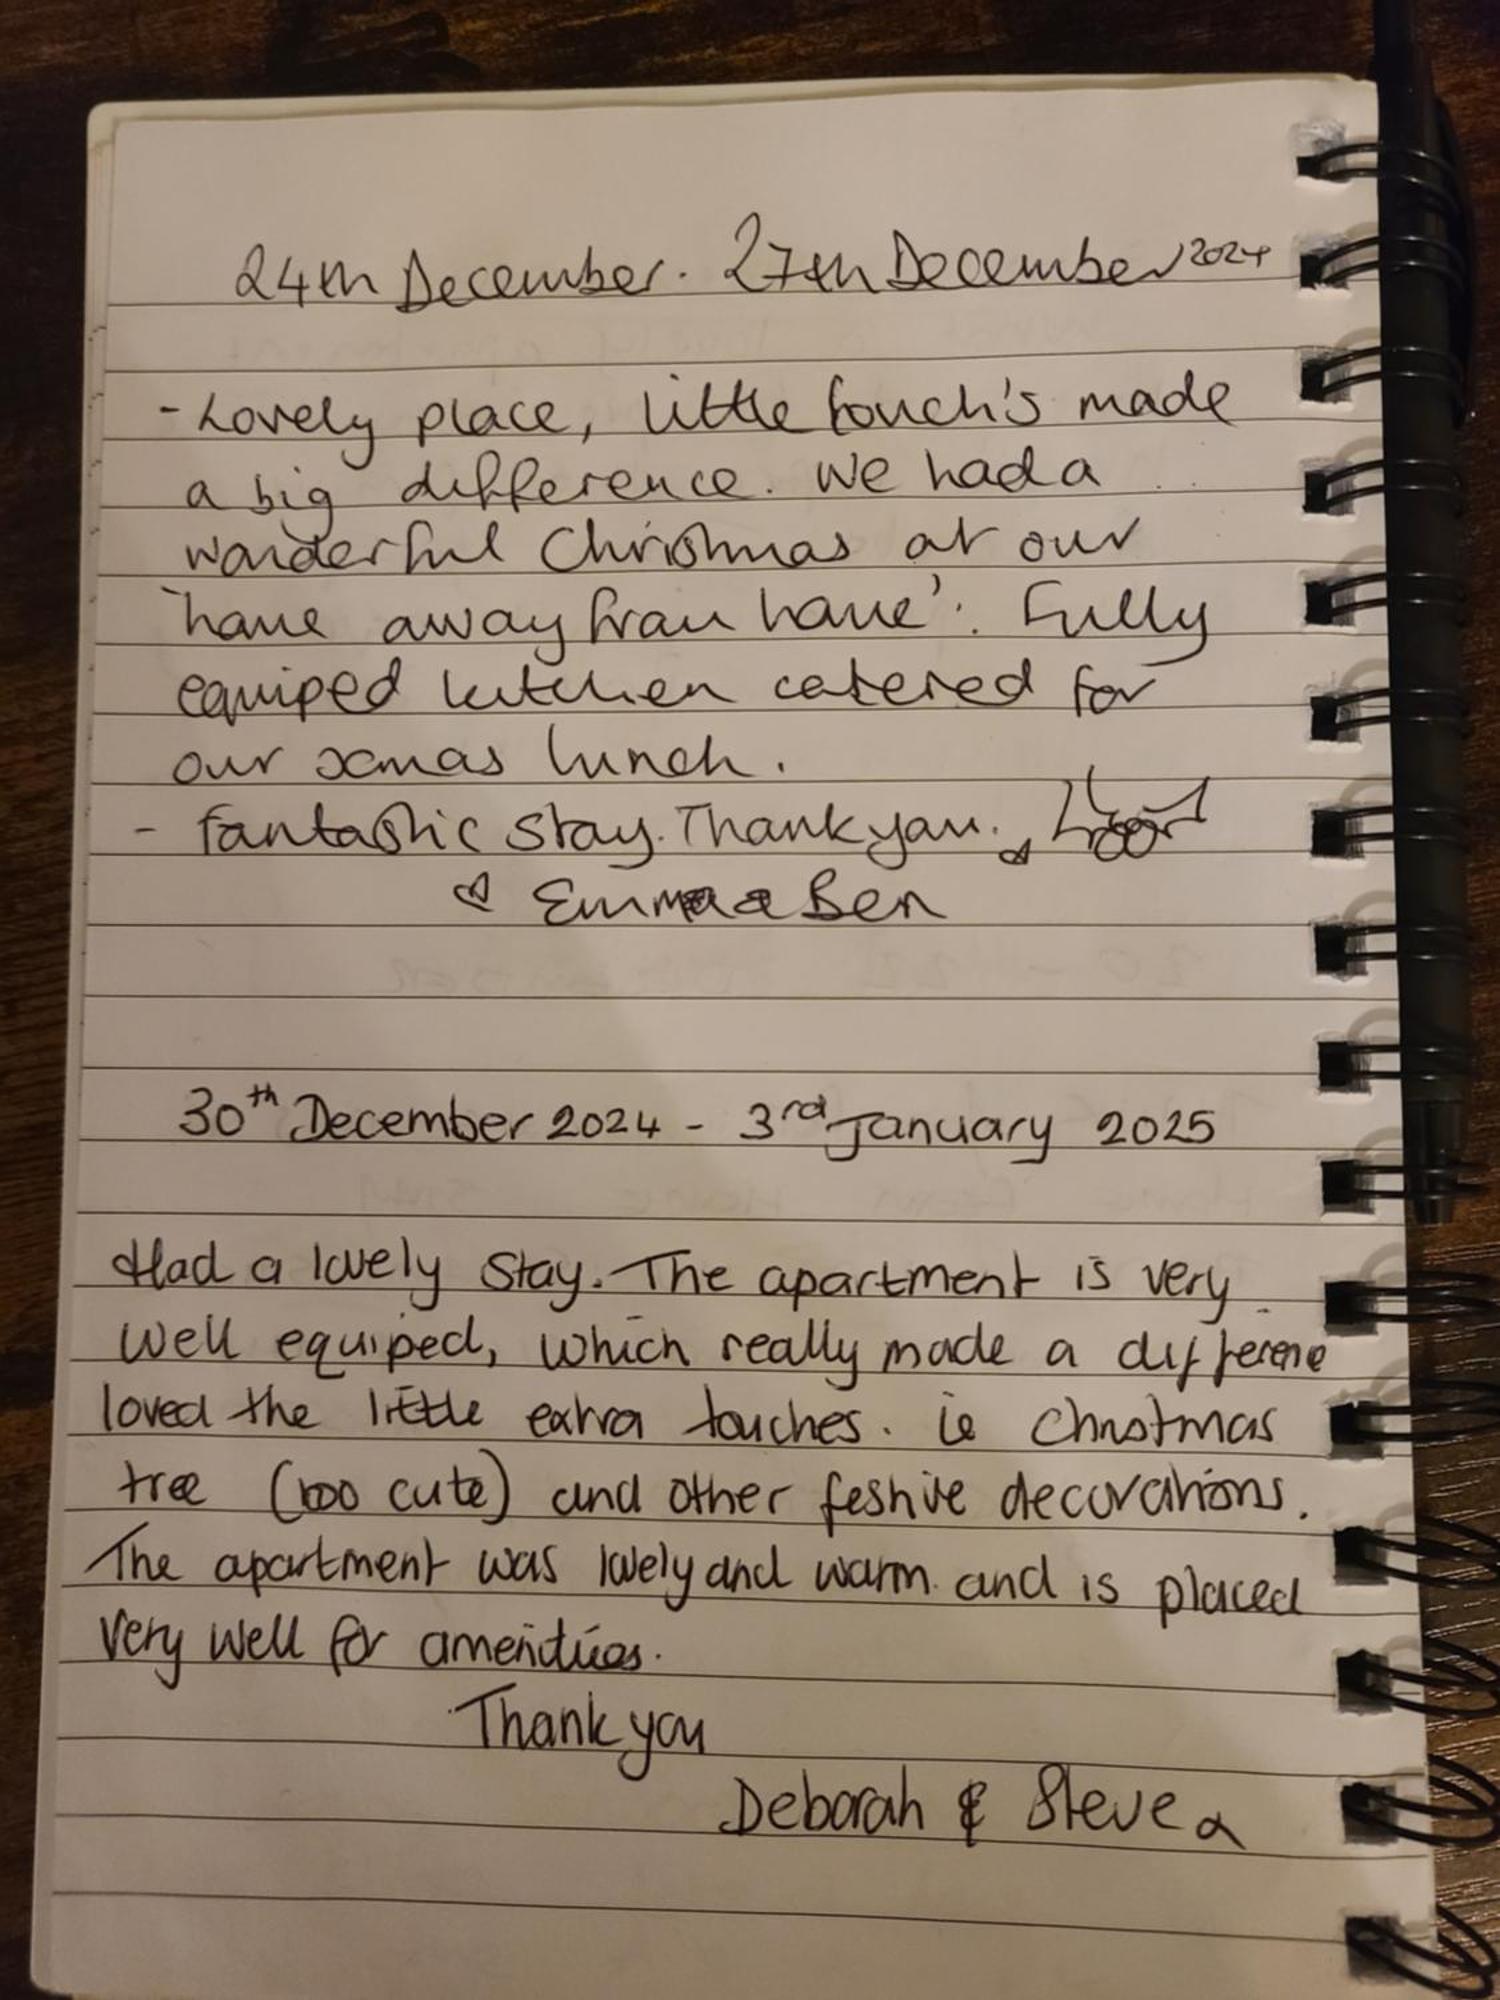 24th December. 27th December 2024
- Lovely place, little touch's made
a big difference. We had a
wonderful Christmas at our
'home away from home'. Fully
equiped kitchen catered for
our xmas lunch.
- Fantastic stay. Thank you.
Emma & Ben
30th December 2024 - 3rd January 2025
Had a lovely stay. The apartment is very
well equiped, which really made a difference
loved the little extra touches. ie Christmas
tree (too cute) and other festive decorations.
The apartment was lovely and warm. and is placed
very well for amenities.
Thank you
Deborah & Steve x